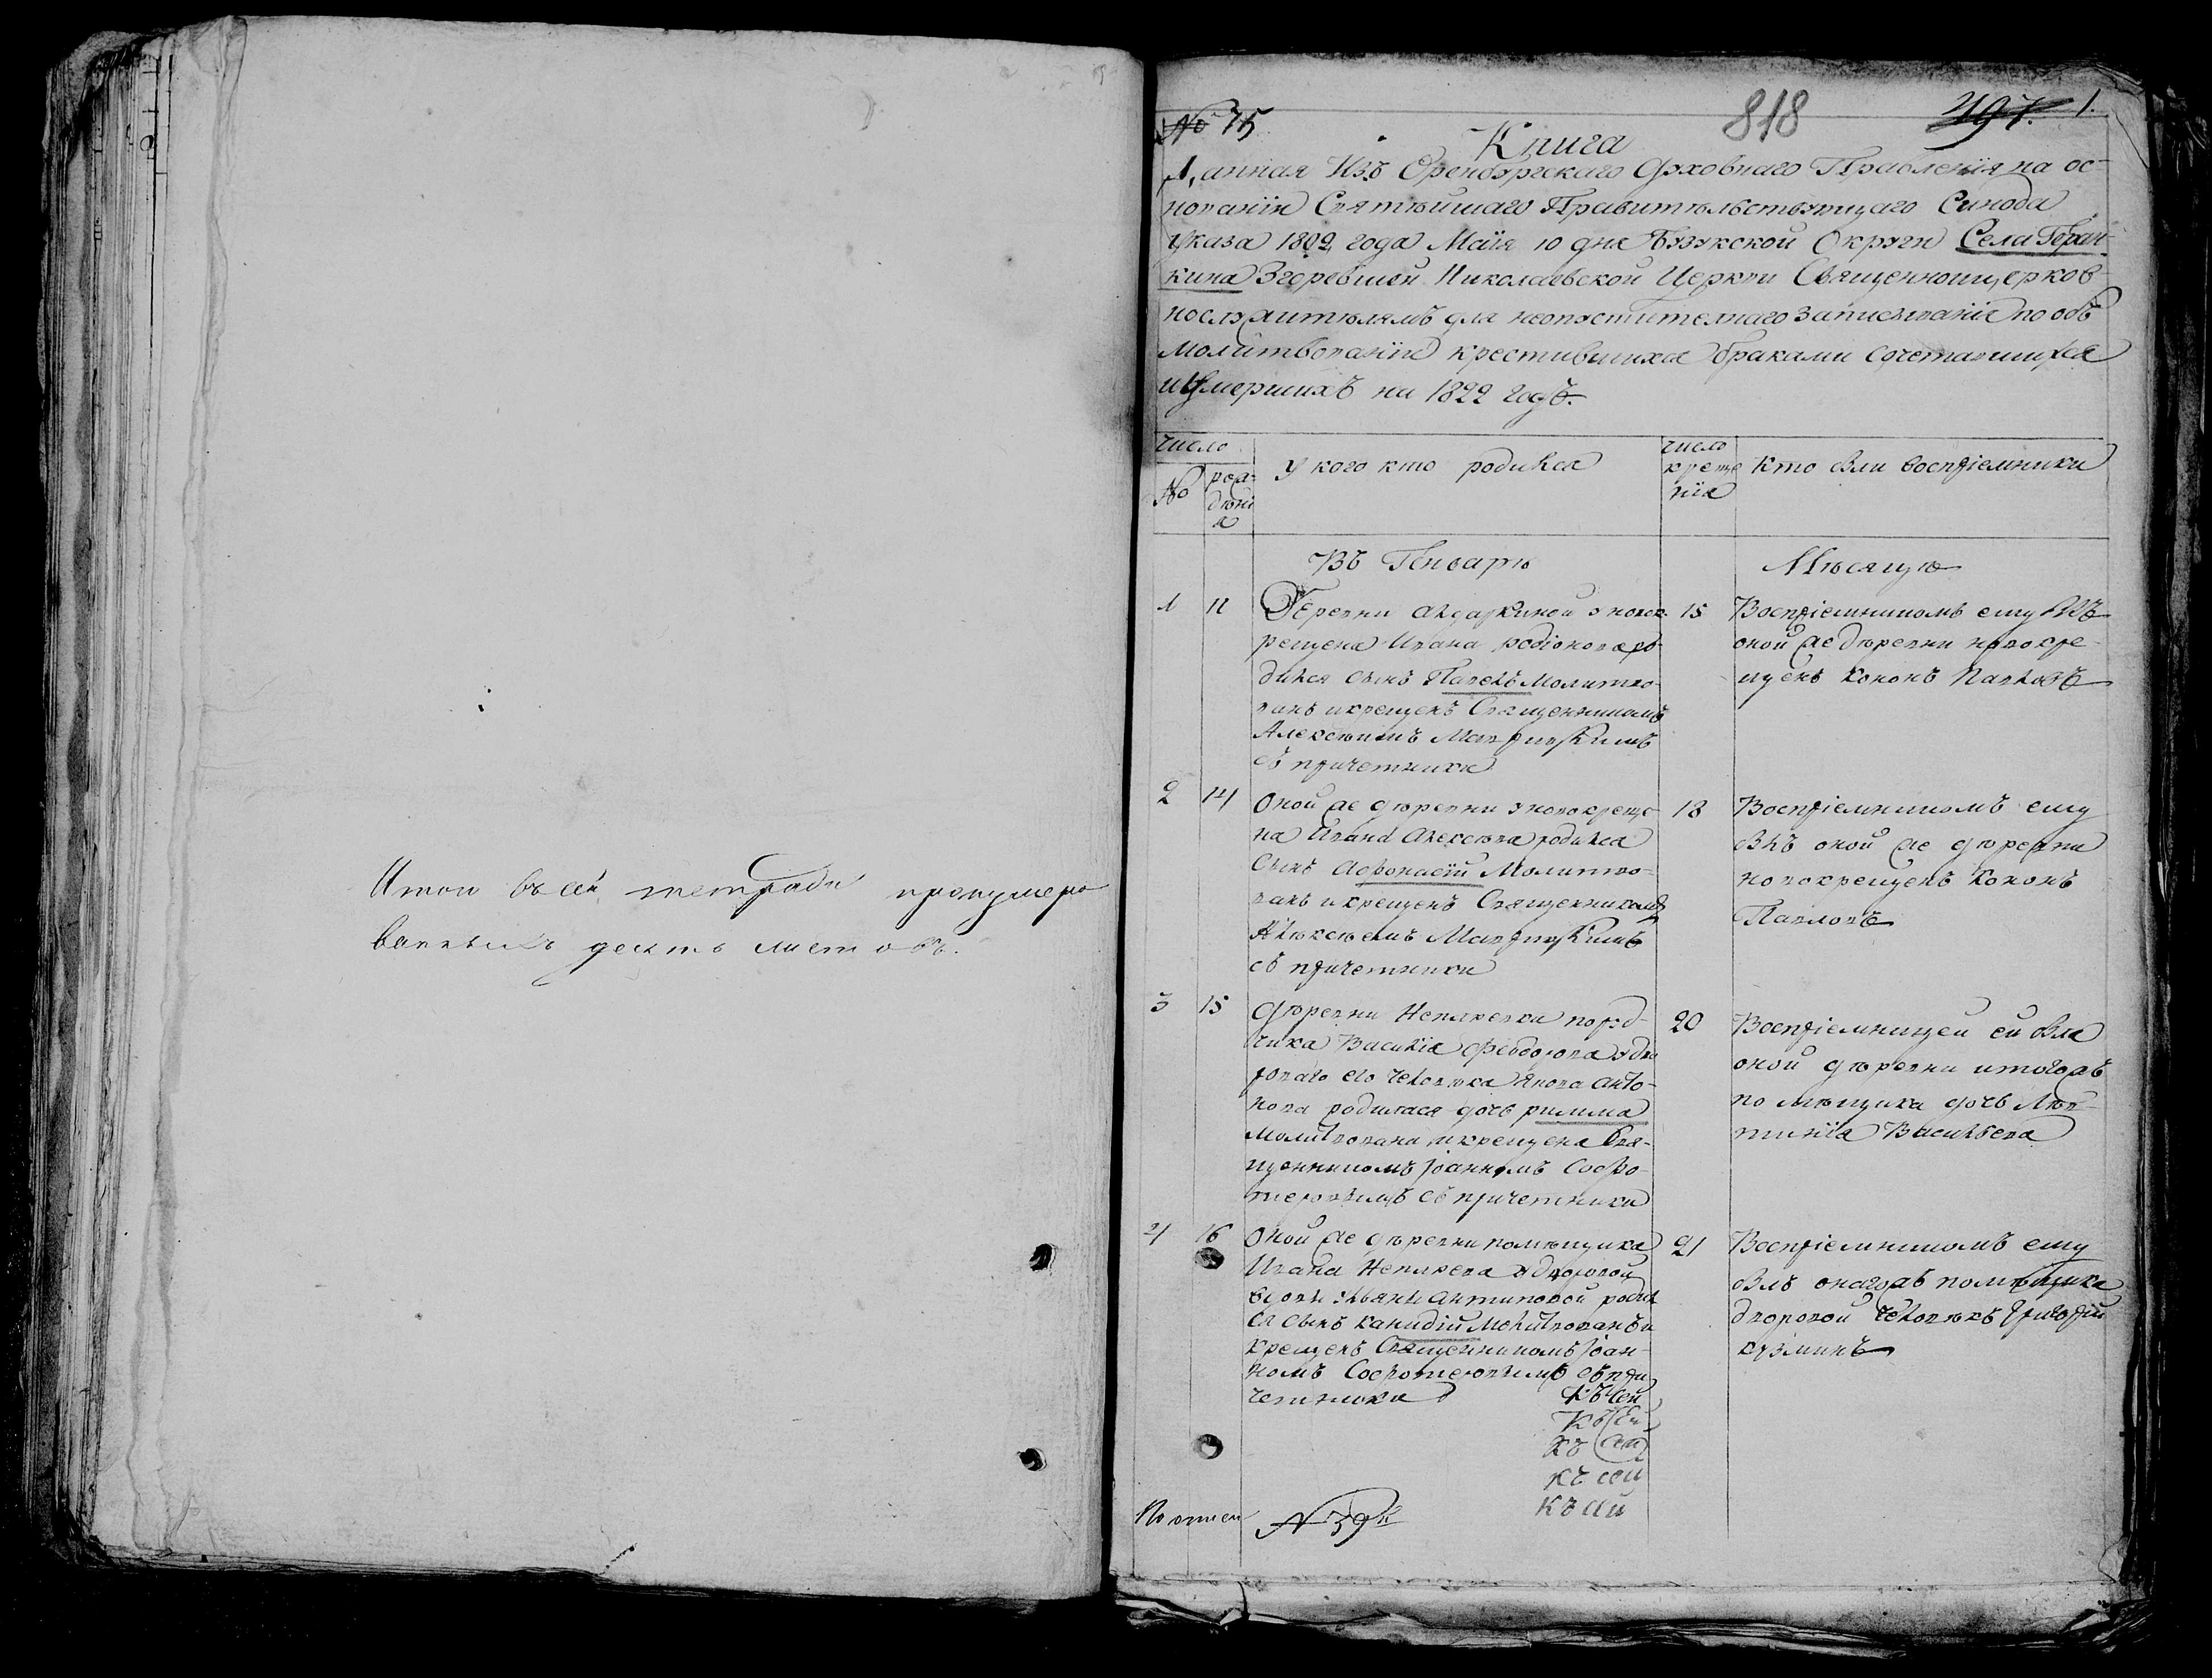 Итого въ сей тетради пронумеро
ванныхъ десять листовъ.
№ 75
818
497.
1.
Книга
Данная Изъ Оренбургскаго Духовнаго Правленія на ос-
нованіи Святѣйшаго Правительствующаго Синода
Указа 1802 года Маія 10 дня Бузукской Округи Села Геран-
кина Згоревшей Николаевской Церкви Священноцерков-
нослужителямъ для неопустителнаго записыванія по объ
молитвованіи крестившихся браками сочетавшихся
и Умершихъ на 1822 годъ.
Число
№
рож-
дѣні
я
У кого кто родился
число
креще
нія
Кто были воспріемники
Въ Генварѣ
Мѣсяцѣ
1
11
Деревни у новок-
рещена Ивана Родіонова ро-
дился сынъ Павелъ Молитво-
ванъ и крещенъ Священникомъ
Алексѣимъ
съ причетники
15
Воспріемникомъ ему былъ
оной же дѣревни новокре-
щенъ Кононъ Павловъ
2
14
Оной же дѣревни у новокреще-
на Ивана Алексѣева родился
сынъ Афонасій Молитво-
ванъ и крещенъ Священникомъ
Алѣксѣемъ
съ причетники
18
Воспріемникомъ ему
былъ оной же дѣревни
новокрещенъ Кононъ
Павловъ
3
15
Дѣревни
Василія Феодорова у дво
роваго его человѣка Анто-
нова родилася дочь Римма
Молитвована и крещена Свя-
щенникомъ Іоанномъ
съ причетники
20
Воспріемницей ей была
оной дѣревни итогожъ
помѣщика дочь
Васильева
4
16
Оной же дѣревни помѣщика
Ивана у дворовой
вдовы Ульяны Антиповой родил
ся сынъ Канидій Молитвованъ и
крещенъ Священникомъ Іоан-
номъ съ при
четники
21
Воспріемникомъ ему
былъ онагожъ помѣщика
дворовой человѣкъ Григорій
Кузминъ
Къ сей
Къ сей
Къ сей
Къ сей
№ 39